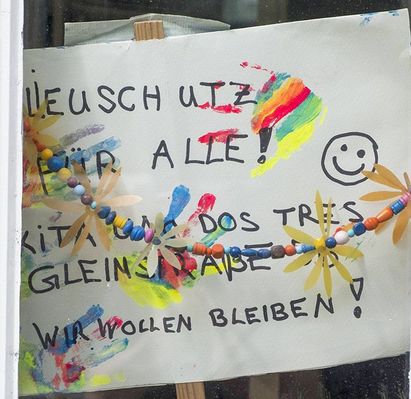 IEUSCHUTZ
FÜR ALLE!
KITA UN DOS TRES
GLEINSTRAßE
WIR WOLLEN BLEIBEN!